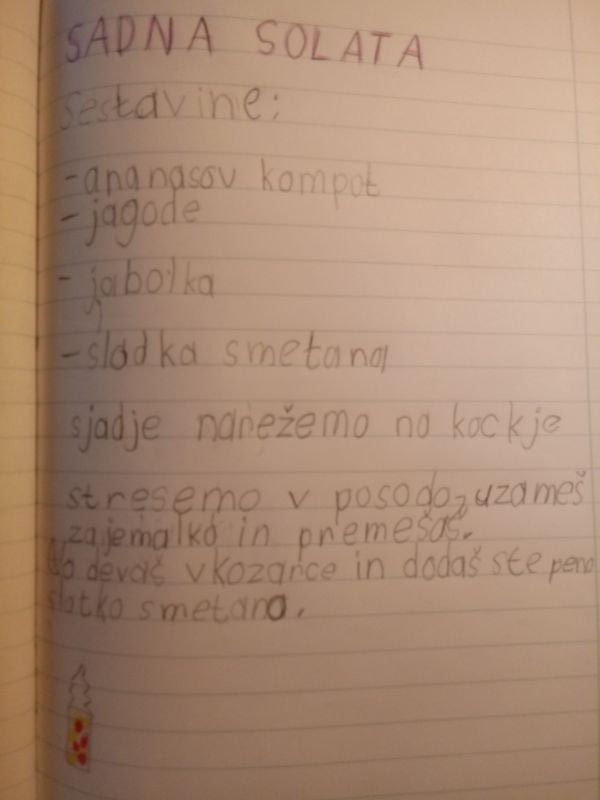 SADNA SOLATA
Sestavine:
-ananasov kompot
-jagode
-jabolka
-sladka smetana
sjadje narežemo na kockje
stresemo v posodo, uzameš
zajemalko in premešaš.
devaš vkozarce in dodaš stepeno
slatko smetano.